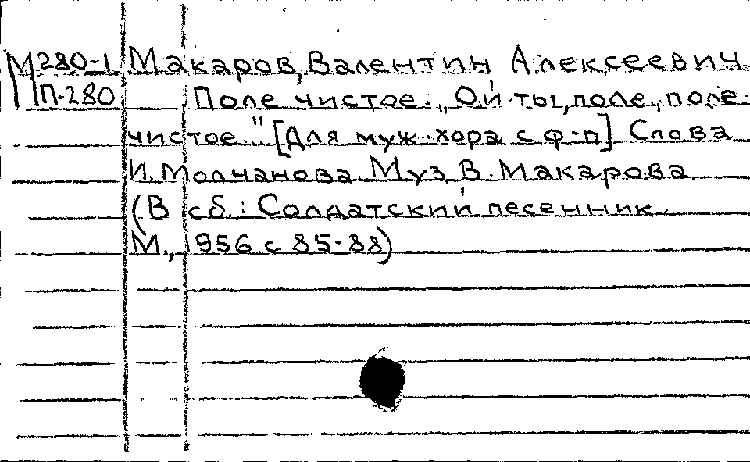 М280-1 Макаров, Валентин Алексеевич
П-280 Поле чистое. „Ой ты, поле, поле
чистое" [Для муж. хора с ф-п] Слова
И. Молчанова Муз. В. Макарова
(В сб.: Солдатский песенник.
М., 1956 с 85-88)